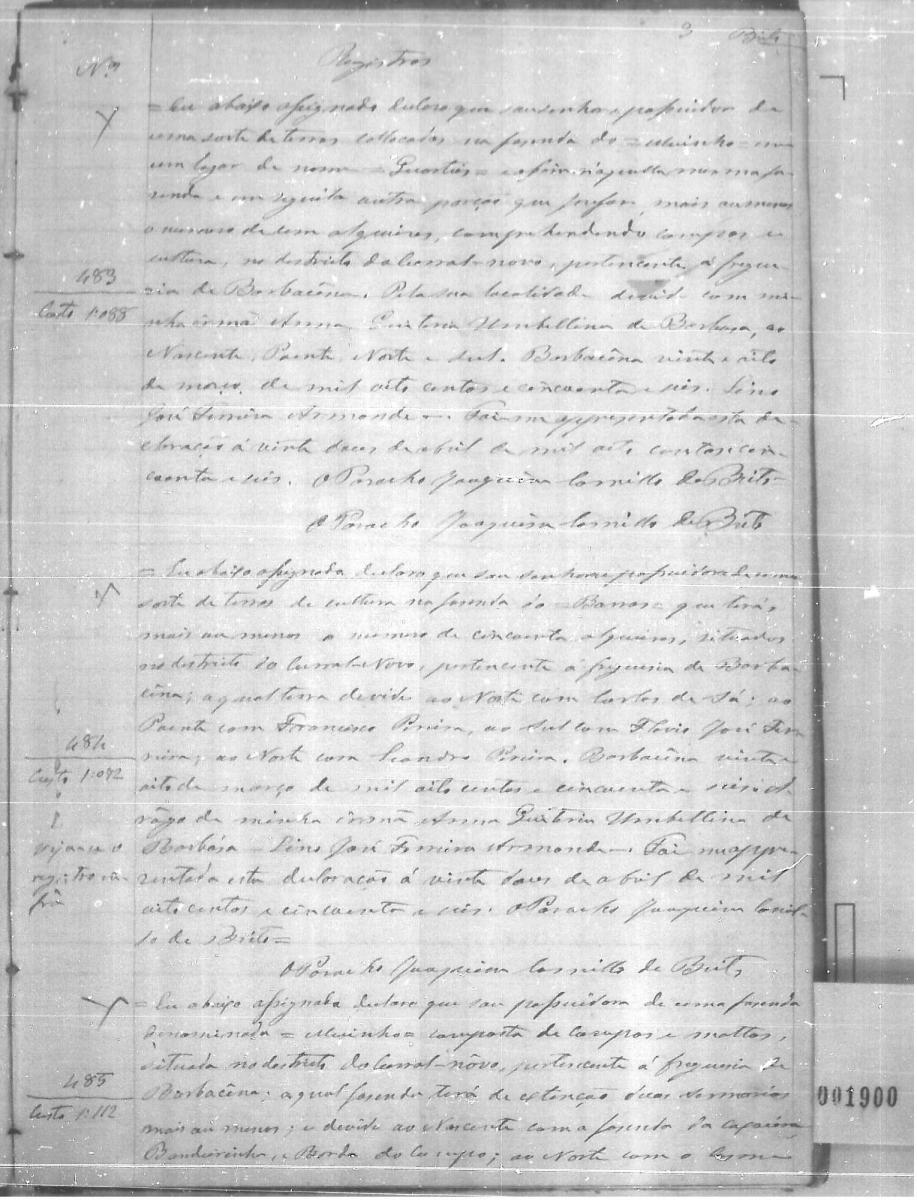 3 Brito
Nos Registros
= Eu abaixo assignado declaro que sou senhor e possuidor de
uma sorte de terras collocadas na fasenda do = Moinho = em
um logar de nome = Quarties = e assim n'aquella mesma fa-
senda e em seguida outra porção que fasem mais ou menos
o numero de cem alqueires, comprehendendo campos e
cultura, no destricto do Curral-novo, pertencente á fregue-
483
sia de Barbacêna. Pela sua localidade devide com mi-
Custo 1:088
nha irmã Anna Quiteria Umbellina de Barbosa, ao
Nascente, Poente, Norte e Sul. Barbacêna vinte e oito
de março de mil oito centos e cincoenta e seis. Lino
José Ferreira Armonde —. Foi me appresentada esta de-
claração á vinte doces de abril de mil oito centos e cin-
coenta e seis. O Parocho Joaquim Camillo de Brito =
O Parocho Joaquim Camillo de Brito
= Eu abaixo assignada declaro que sou senhora e possuidora de uma
sorte de terras de cultura na fasenda do = Barros = que terá,
mais ou menos o numero de cincoenta alqueires, situados
no destricto do Curral-Novo, pertencente á freguesia de Barba-
cêna; a qual terra devide ao Norte com Carlos de Sá; ao
Poente com Francisco Pereira, ao Sul com Flavio José Fer-
484
reira; ao Norte com Leandro Pereira. Barbacêna vinte e
Custo 1:092
oito de março de mil oito centos e cincoenta e seis. A
rôgo de minha irmã Anna Quiteria Umbellina de
veja-se o
Barbósa — Lino José Ferreira Armonde —. Foi me appre-
registro
sentada esta declaração á vinte doces de abril de mil
oito centos e cincoenta e seis. O Parocho Joaquim Camil-
lo de Brito =
O Parocho Joaquim Camillo de Brito
= Eu abaixo assignada declaro que sou possuidora de uma fasenda
denominada = Moinho = composta de campos e mattos,
situada no destricto do Curral-nôvo, pertencente á freguesia de
485
Barbacêna; a qual fasenda terá de estenção duas sesmarias
Custo 1:112
mais ou menos; e devide ao Nascente com a fasenda da
Bandeirinha, e Borda do Campo; ao Norte com o
001900